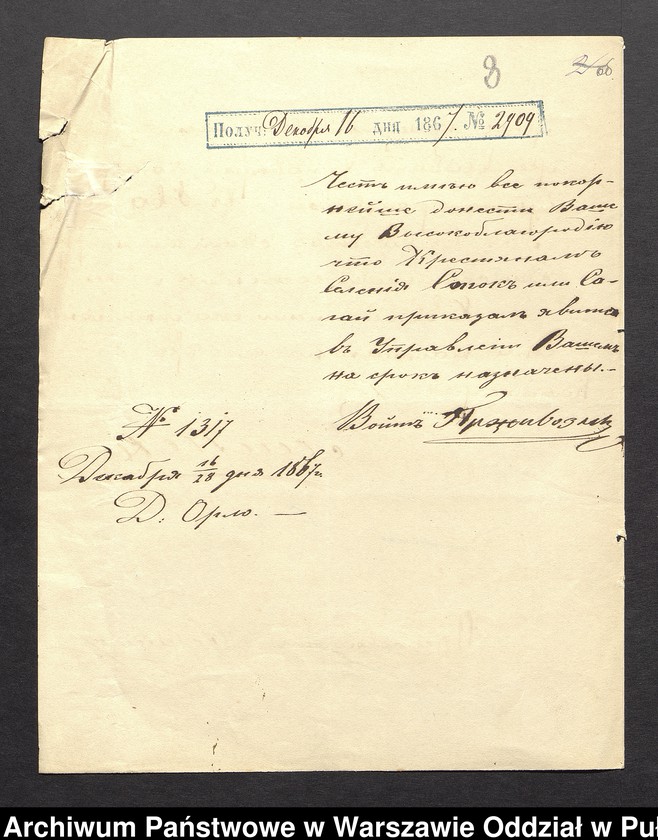 8
266
Получ. Декабря 16 дня 1867. № 2909
Честь имѣю все покор-
нейше донести Ваше
му Высокоблагородію
что Крестянамъ
Селенія Стокъ или Са-
гай приказалъ явитса
въ Управленіи Вашемъ
на срокъ назначены.-
Войтъ
№ 1317
Декабря 16/28 дня 1867 г.
Д: Орло. —
Archiwum Państwowe w Warszawie Oddział w Pu